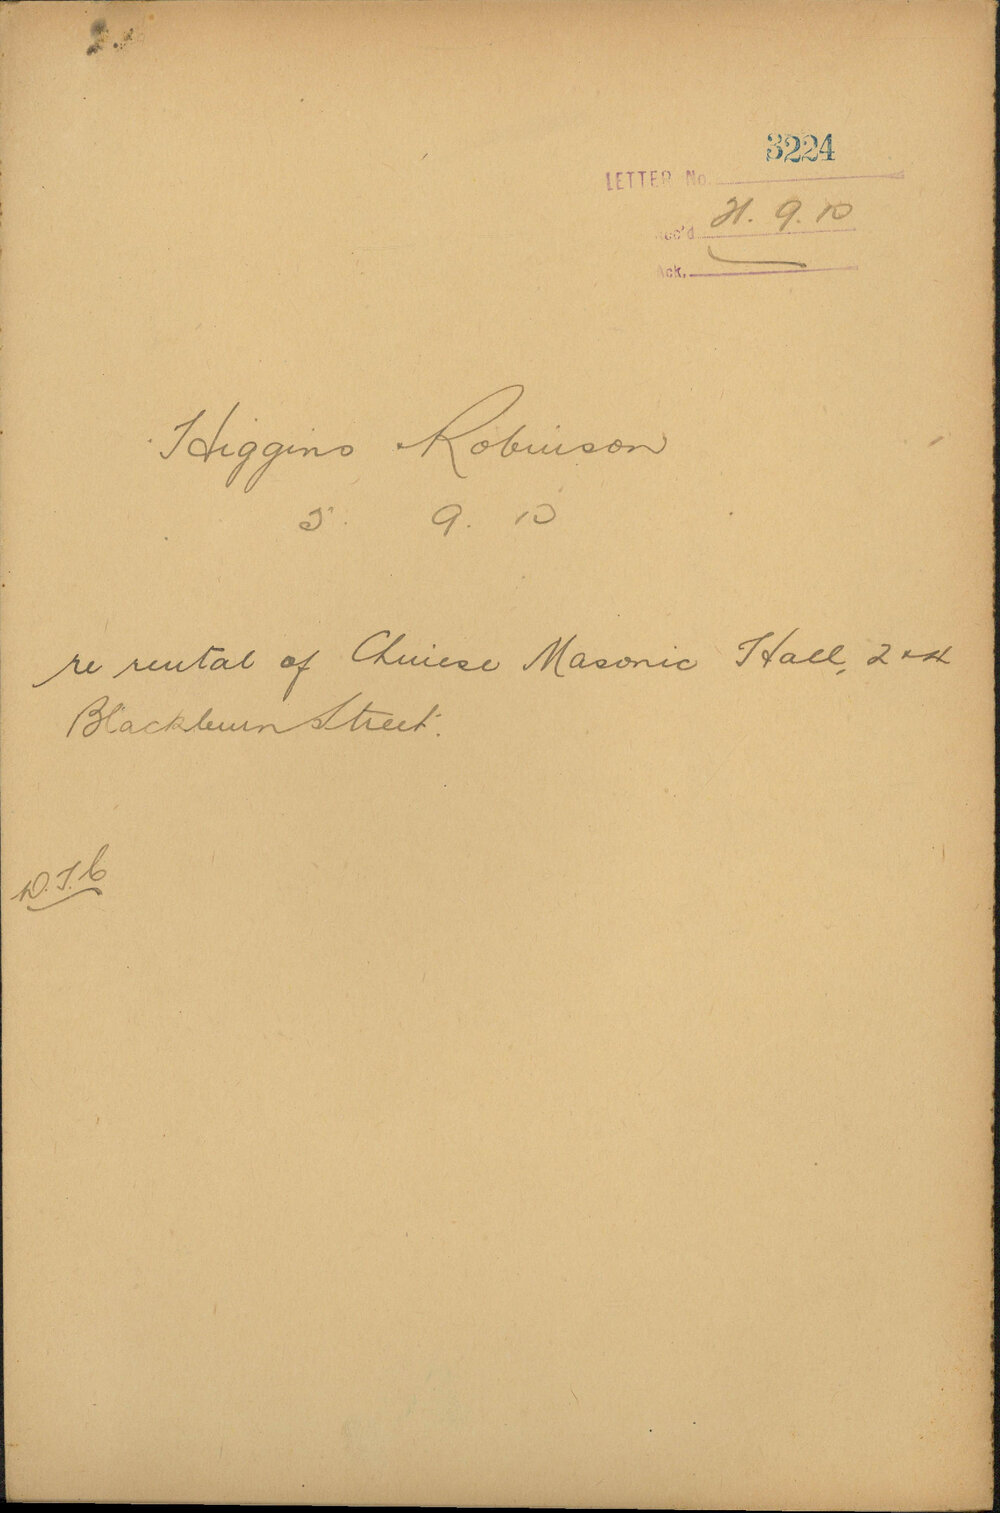 3224
LETTER No.
Rec'd 21. 9. 10
Ack.
Higgins Robinson
5. 9. 10
re rental of Chinese Masonic Hall, 2 & 4
Blackburn Street.
D.T.C